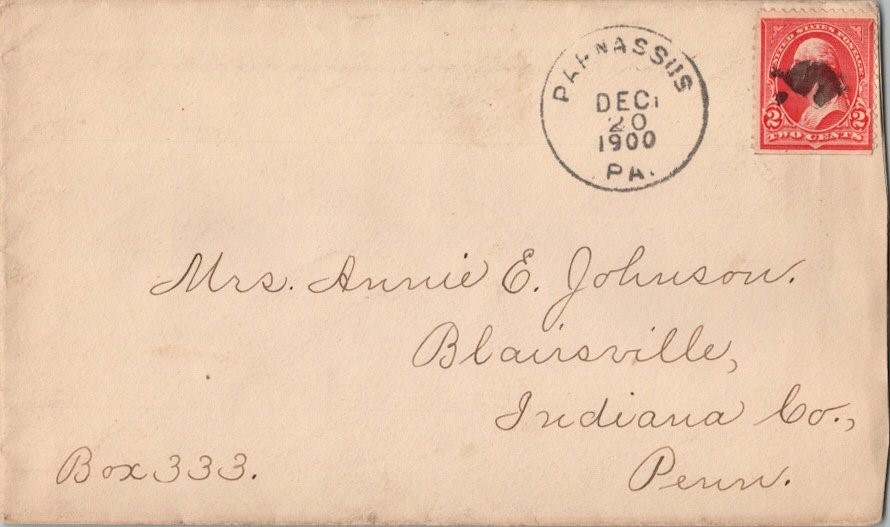 PARNASSUS
DEC.
20
1900
PA.
UNITED STATES POSTAGE
2 2
TWO CENTS
Mrs. Annie E. Johnson.
Blairsville,
Indiana Co.,
Box 333.
Penn.